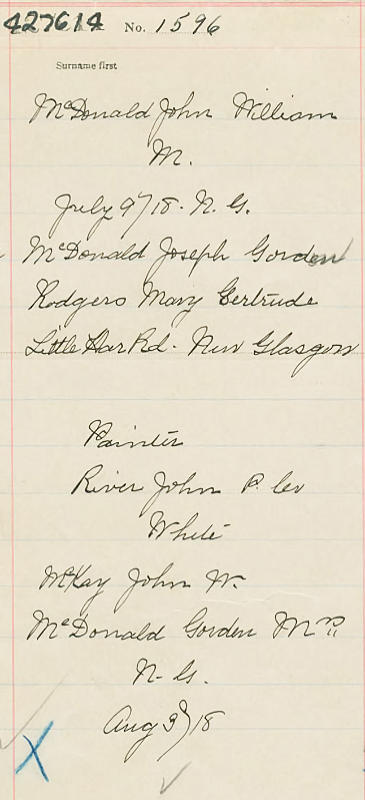 427614 No. 1596
Surname first
McDonald John William
M.
July 9"/18. N. G.
McDonald Joseph Gorden
Rodgers Mary Gertrude
Little Har Rd. New Glasgow
Painter
River John P. Co
White
McKay John W.
McDonald Gorden Mrs
N. G.
Aug 3"/18